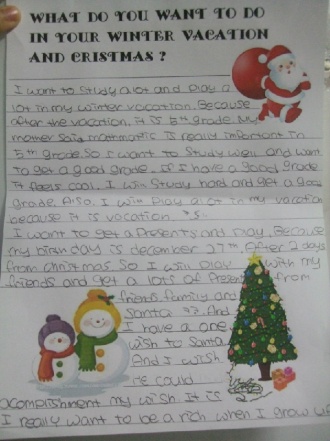 WHAT DO YOU WANT TO DO
IN YOUR WINTER VACATION
AND CRISTMAS ?
I want to Study a lot and Play a
lot in my winter vacation. Because
after the vacation, it is 5th grade. My
mother Said mathmatic is really important in
5th grade. So I want to Study well and want
to get a good grade. If I have a good grade
it feels cool. I will Study hard and get a good
grade. Also, I will Play a lot in my vacation
because it is vacation
I want to get a Presents and Play. Because
my birthday is december 27th After 2 days
from christmas. So I will Play with my
friends and get a lots of Presents from
friends family and
Santa ^^. And
I have a one
wish to Santa
And I wish
he could
accomplishment my wish. It is
I really want to be a rich when I grow up